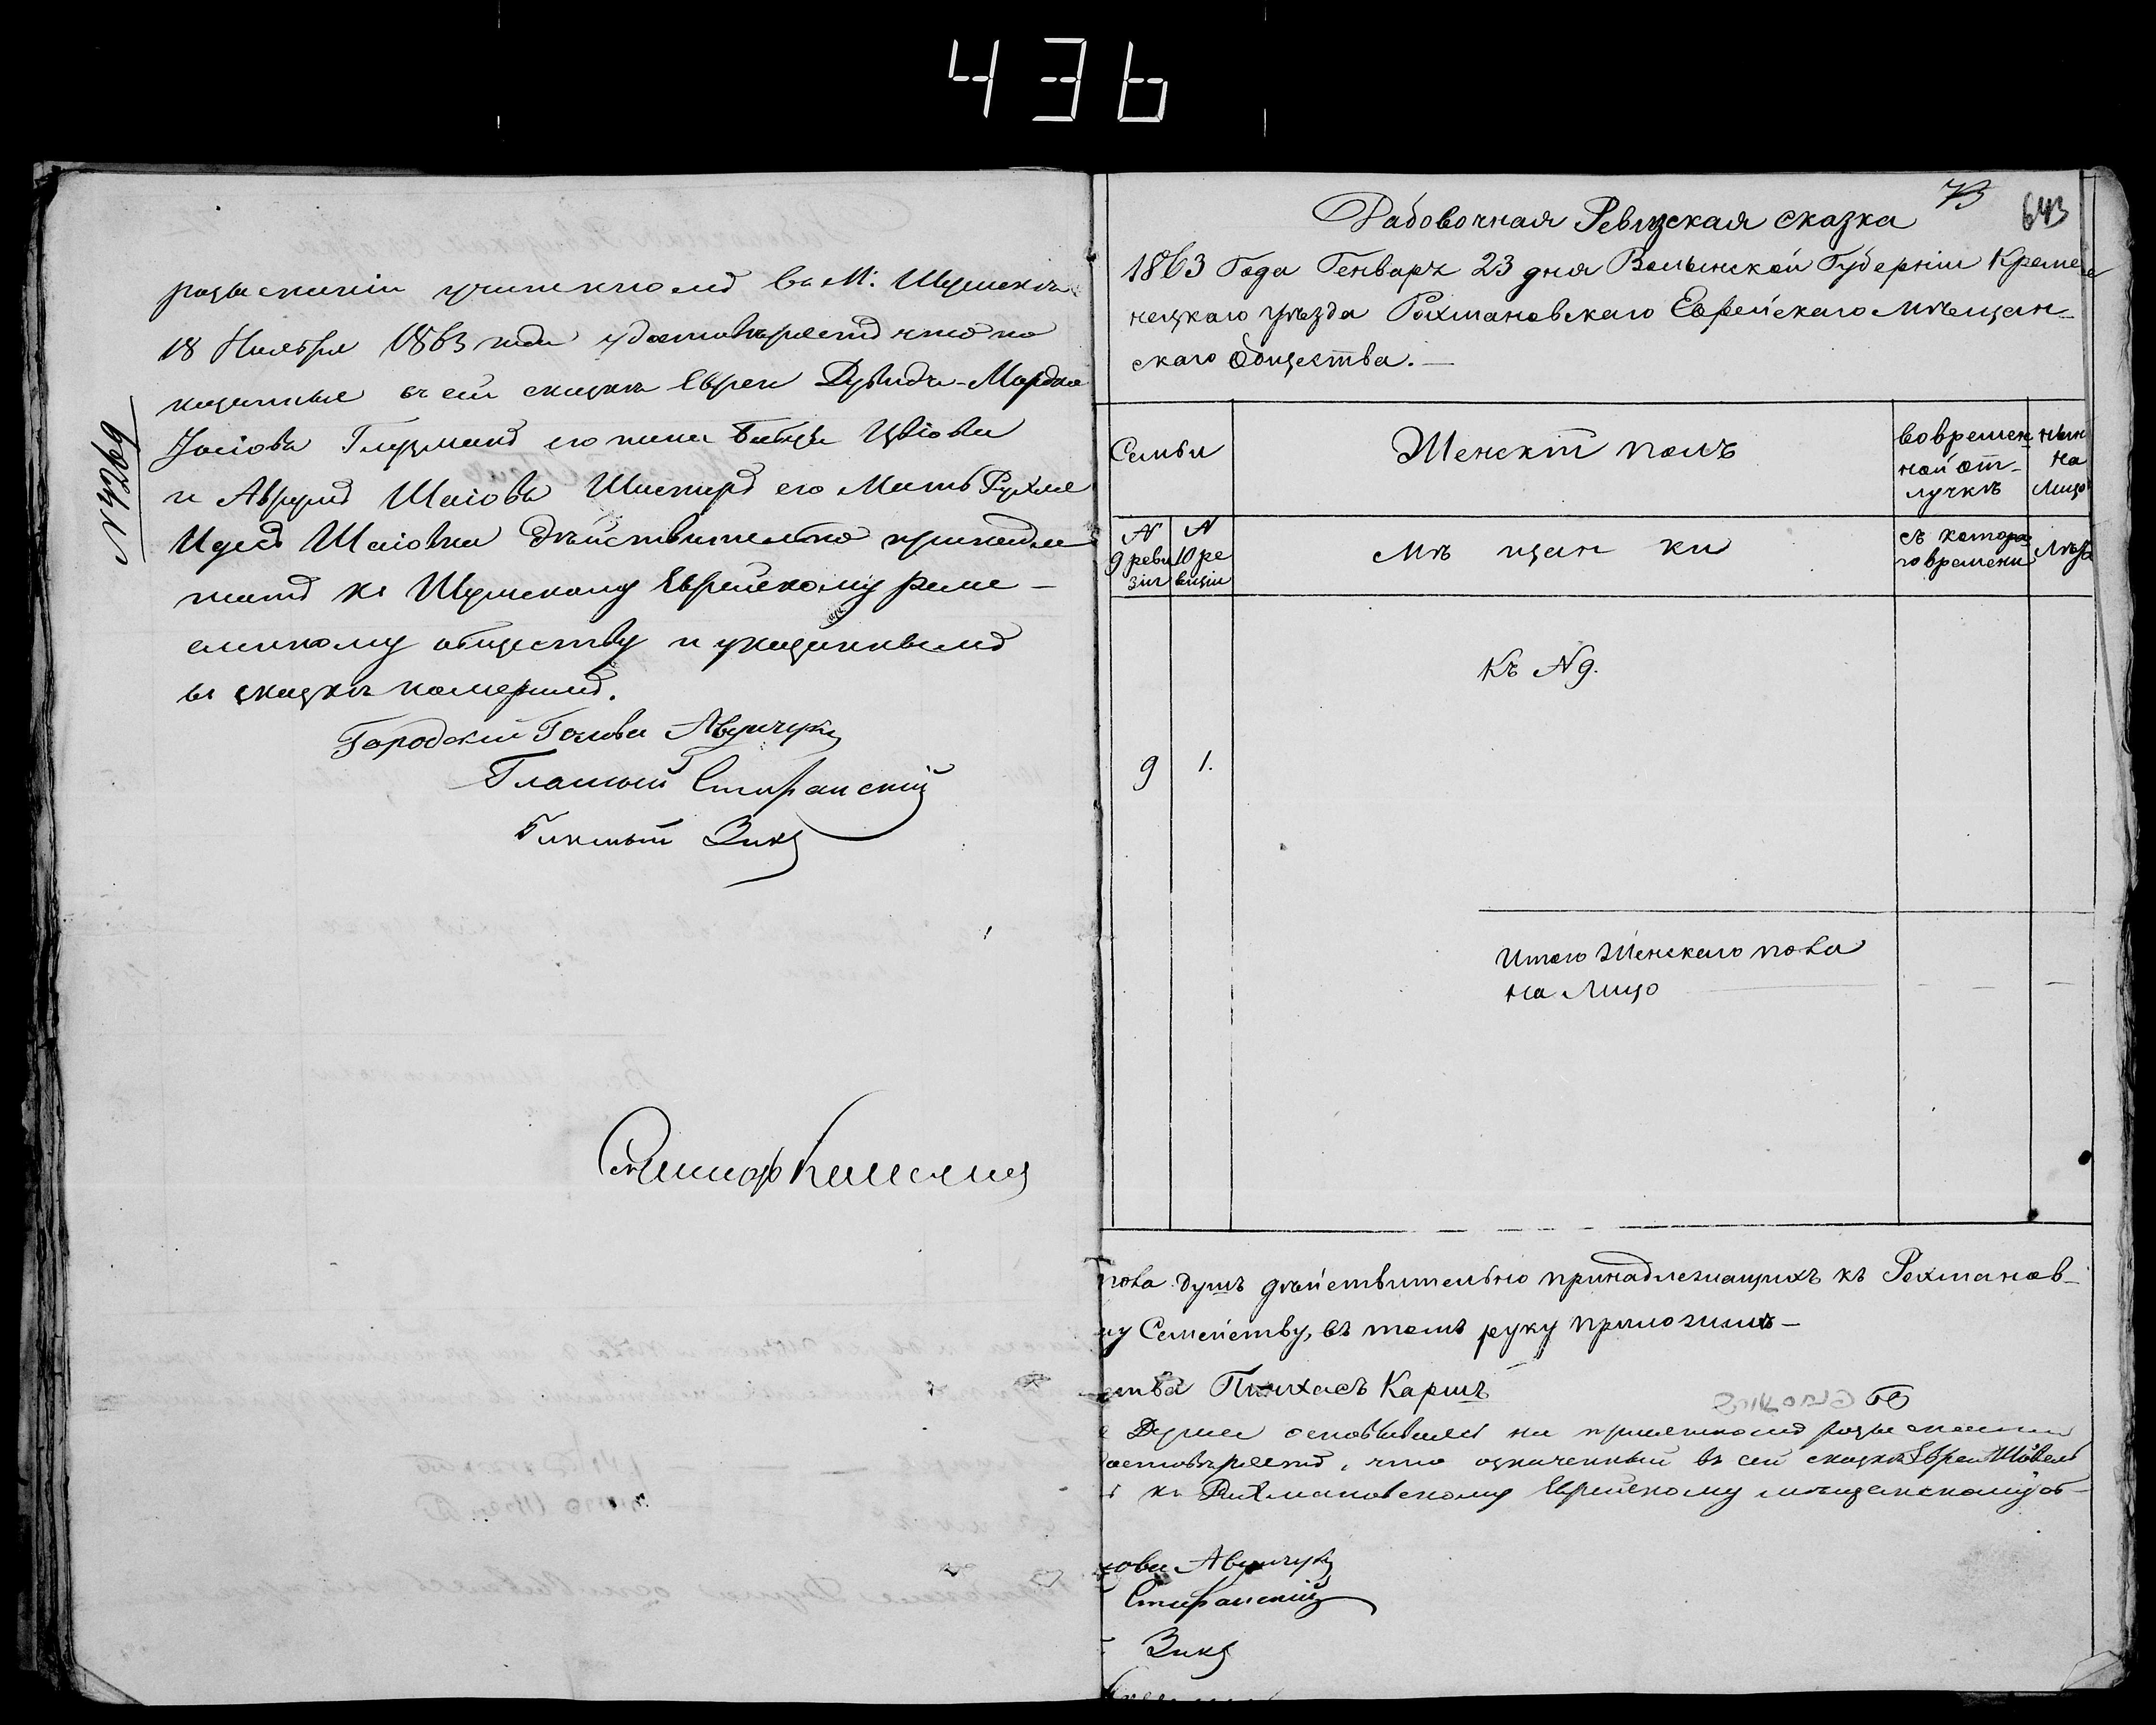 436
розысканіи учиненномъ въ М: Шумскѣ
18 Ноября 1863 года удостовѣряетъ что по
казанные въ сей сказкѣ Евреи Дувидъ-Мордко
Іосіовъ Глузманъ его жена Цвіовна
и Аврумъ Шаіовъ его Мать Рухля
Идесъ Шаіовна дѣйствительно принадле
жатъ къ Шумскому Еврейскому реме-
сленному обществу и указаннымъ
въ сказкѣ номерамъ.
N 4269
Городской Голова Авунчукъ
Гласный Стифанскій
Гласный Зикъ
73
643
Рабовочная Ревизская сказка
1863 Года Генваря 23 дня Волынской Губерніи Кремe
нецкаго уѣзда Рахмановскаго Еврейскаго мѣщан-
скаго Общества.—
Семьи
Женскій полъ
во времен
ной от-
лучкѣ
нын
на
Лицо
N
9 реви
зіи
N
10 ре
визіи
Мѣ щан ки
съ котора
го времени
Лѣта
Къ N 9.
9 1.
Итого Женскаго пола
на Лицо
пола душъ дѣйствительно принадлежащихъ къ Рохманов-
му Семейству, въ томъ руку приложилъ—
ства Пинхасъ Каршъ
Думы основываясь на розысканіи
остовѣряетъ, что означенный въ сей сказкѣ Еврей
къ Рахмановскому Еврейскому мѣщанскому об-
лова Авунчукъ
Стифанскій
Зикъ